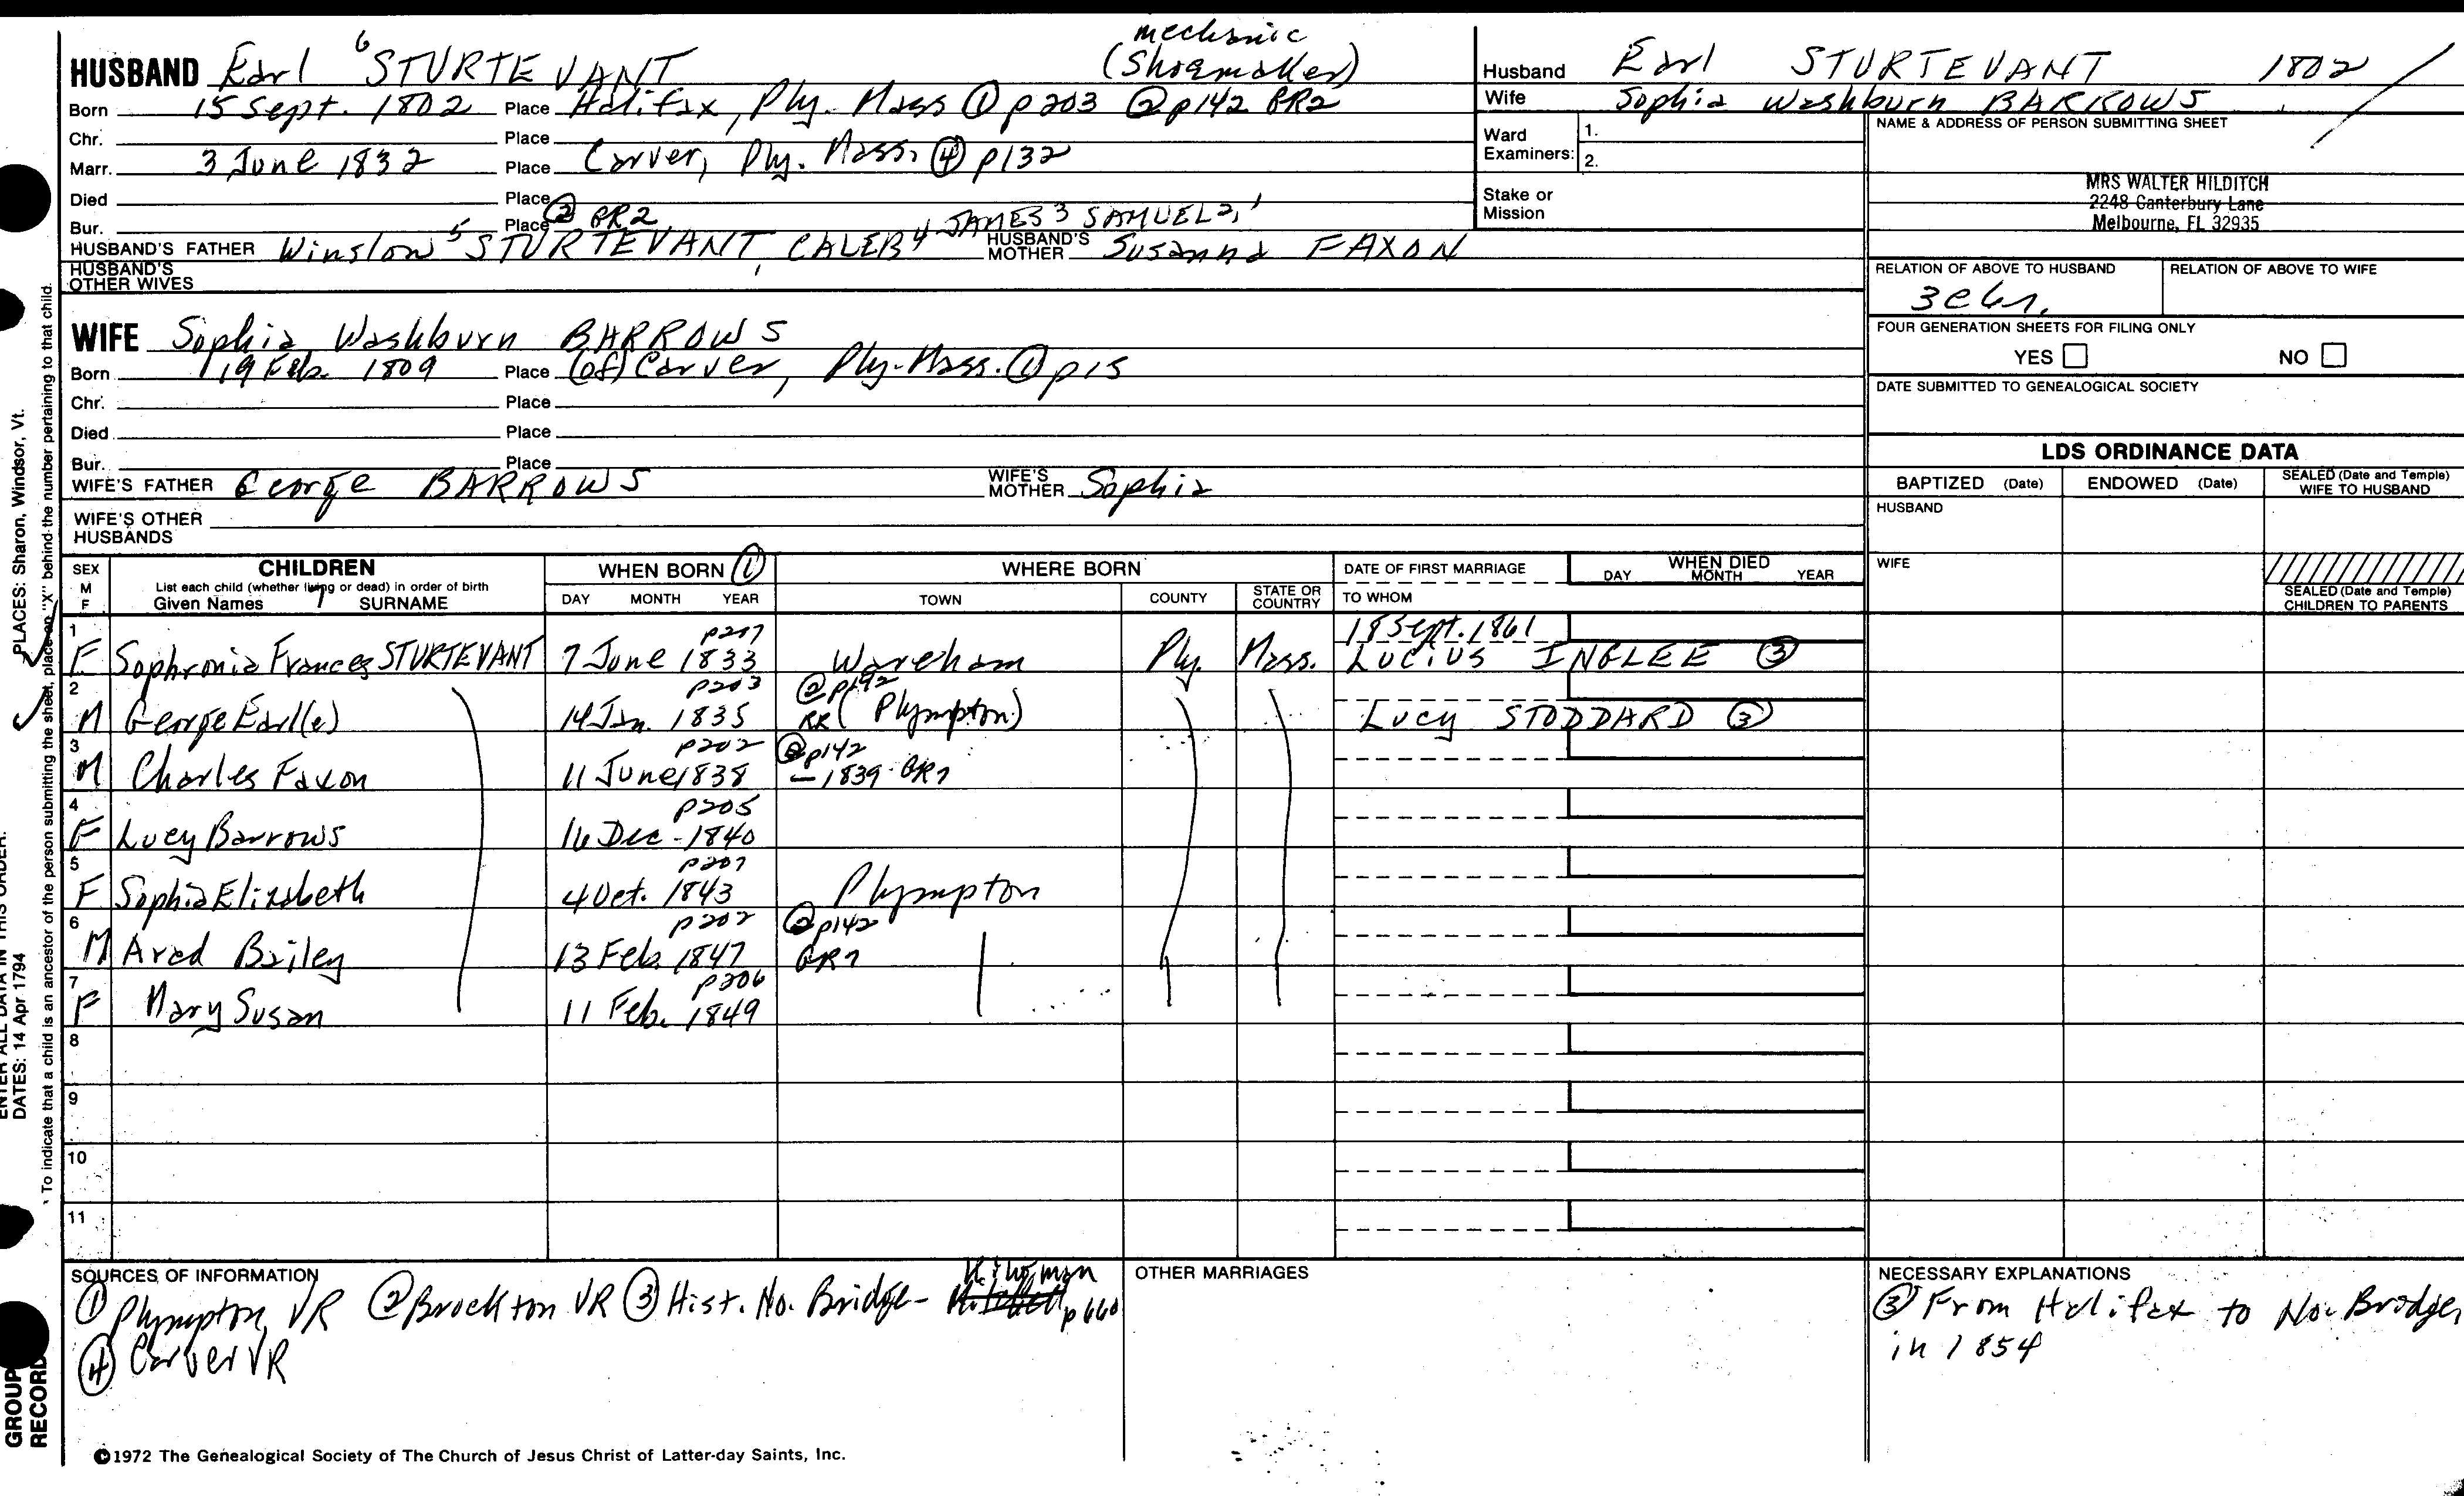 mechanic
HUSBAND Earl 6 STURTEVANT (Shoemaker)
Born 15 Sept. 1802 Place Halifax, Ply. Mass ① p203 ② p142 BR2
Chr. Place
Marr. 3 June 1832 Place Carver, Ply. Mass. ④ p132
Died Place
② BR2
Bur. Place
HUSBAND'S FATHER Winslow 5 STURTEVANT, CALEB 4 JAMES 3 SAMUEL 2, 1 HUSBAND'S MOTHER Susanna FAXON
HUSBAND'S OTHER WIVES
WIFE Sophia Washburn BARROWS
Born 19 Feb. 1809 Place (of) Carver, Ply. Mass. ① p15
Chr. Place
Died Place
Bur. Place
WIFE'S FATHER George BARROWS WIFE'S MOTHER Sophia
WIFE'S OTHER HUSBANDS
Husband Earl STURTEVANT 1802
Wife Sophia Washburn BARROWS
Ward Examiners: 1.
2.
Stake or Mission
NAME & ADDRESS OF PERSON SUBMITTING SHEET
MRS WALTER HILDITCH
2248 Canterbury Lane
Melbourne, FL 32935
RELATION OF ABOVE TO HUSBAND RELATION OF ABOVE TO WIFE
FOUR GENERATION SHEETS FOR FILING ONLY
YES NO
DATE SUBMITTED TO GENEALOGICAL SOCIETY
LDS ORDINANCE DATA
BAPTIZED (Date) ENDOWED (Date) SEALED (Date and Temple) WIFE TO HUSBAND
HUSBAND
WIFE
SEALED (Date and Temple) CHILDREN TO PARENTS
SEX M F
CHILDREN
List each child (whether living or dead) in order of birth
Given Names 7 SURNAME
WHEN BORN ①
DAY MONTH YEAR
WHERE BORN
TOWN COUNTY STATE OR COUNTRY
DATE OF FIRST MARRIAGE
TO WHOM
WHEN DIED
DAY MONTH YEAR
1 p207 18 Sept. 1861
F Sophronia Frances STURTEVANT 7 June 1833 Wareham Ply. Mass. LUCIUS INGLEE ③
2 p203 ② p142
M George Earl(e) 14 Jan. 1835 (Plympton) Lucy STODDARD ③
3 p202 ② p142
M Charles Faxon 11 June 1838 – 1839 GR7
4 p205
F Lucy Barrows 16 Dec - 1840
5 p207
F Sophia Elizabeth 4 Oct. 1843 Plympton
6 p202 ② p142
M Arad Bailey 13 Feb. 1847 GR7
7 p206
F Mary Susan 11 Feb. 1849
8
9
10
11
SOURCES OF INFORMATION
① Plympton VR ② Brockton VR ③ Hist. No. Bridge - Kingman p660
④ Carver VR
OTHER MARRIAGES
NECESSARY EXPLANATIONS
③ From Halifax to No. Bridge,
in 1854
©1972 The Genealogical Society of The Church of Jesus Christ of Latter-day Saints, Inc.
PLACES: Sharon, Windsor, Vt.
ENTER ALL DATA IN THIS ORDER:
DATES: 14 Apr 1794
To indicate that a child is an ancestor of the person submitting the sheet, place an "X" behind the number pertaining to that child.
GROUP
RECORD